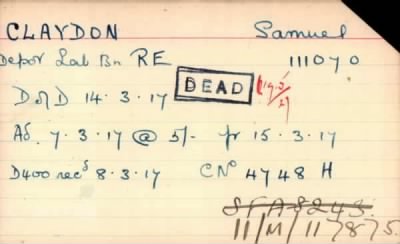 CLAYDON Samuel
Depot Lab Bn RE 111070
D of D 14.3.17 DEAD
Ad. 7.3.17 @ 5/- fr 15.3.17
D400 recd 8.3.17 CNo 4748 H
SFA 8243.
11/M/11785.